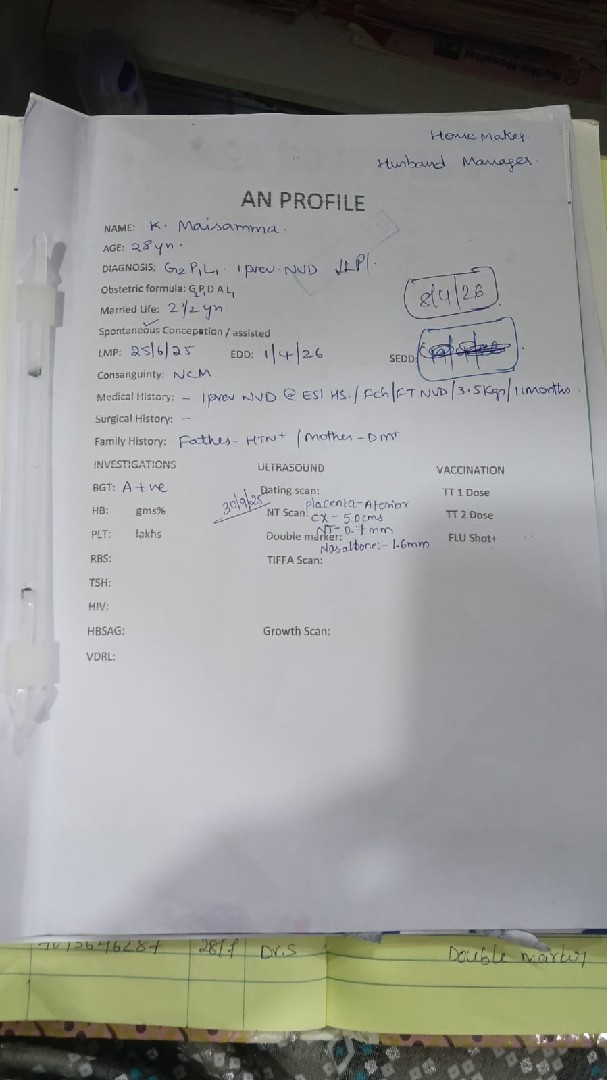 Home Maker.
Husband Manager.
AN PROFILE
NAME: K. Maisamma.
AGE: 28 yr.
DIAGNOSIS: G2 P1 L1. 1 prev. NVD
8/4/26
Obstetric formula: G2P1D A L1
Married Life: 2 1/2 yr
Spontaneous Conception / assisted
LMP: 25/6/25 EDD: 1/4/26 SEDD:
Consanguinty: NCM
Medical History: - 1 prev NVD @ ESI HS. / Fch / FT NVD / 3.5 kgs / 11 months.
Surgical History: -
Family History: Father - HTN+ / Mother - DM+
INVESTIGATIONS ULTRASOUND VACCINATION
BGT: A+ve Dating scan: TT 1 Dose
30/9/25 placenta - Aterior
HB: gms% NT Scan: CX - 5.0 cms TT 2 Dose
NT - 0.7 mm
PLT: lakhs Double marker: FLU Shot+
Nasalbone:- 1.6mm
RBS: TIFFA Scan:
TSH:
HIV:
HBSAG: Growth Scan:
VDRL:
28/f Dr.S Double